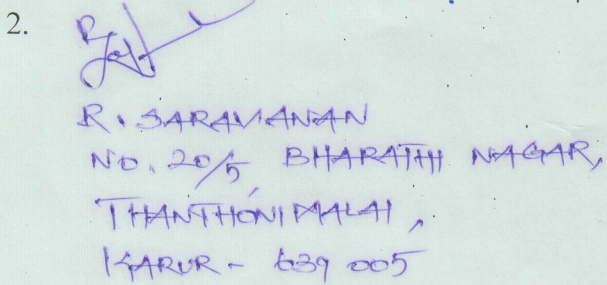 2.
R. SARAVANAN
NO. 20/5, BHARATHI NAGAR,
THANTHONIMALAI,
KARUR - 639 005